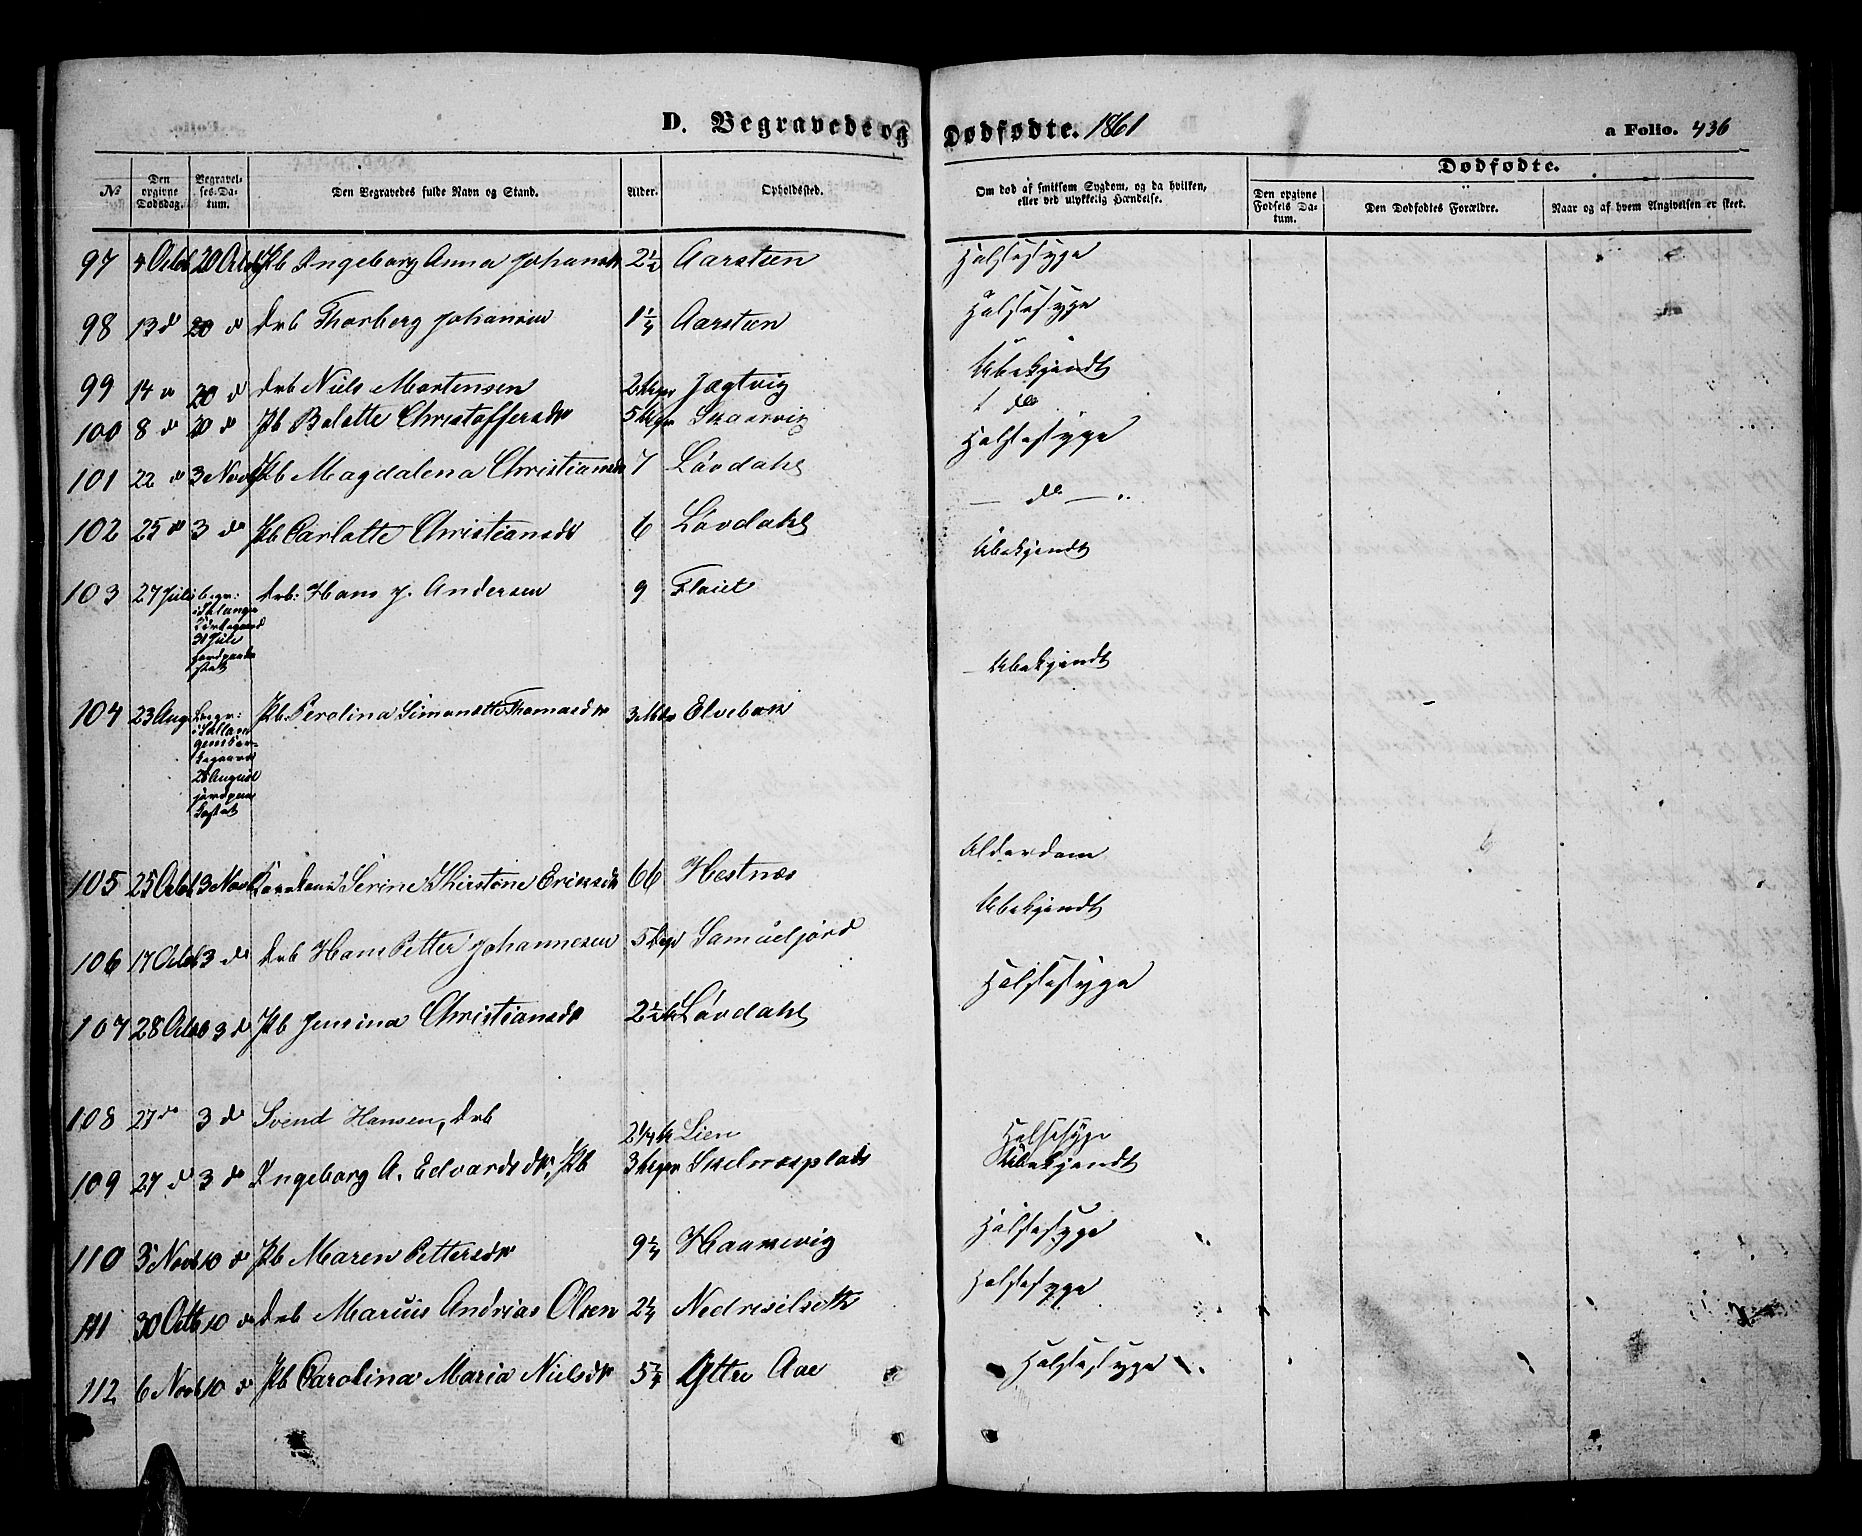 D. Begravede og Dødfødte. 1861
a Folio. 436
Dødfødte.
No
Den opgivne Dødsdag.
Begravelses-Datum.
Den Begravedes fulde Navn og Stand.
Alder.
Opholdssted.
Om død af smitsom Sygdom, og da hvilken, eller ved ulykkelig Hændelse.
Den opgivne Fødsels Datum.
Den Dødfødtes Forældre.
Naar og af hvem Angivelsen er skeet.
97 4 Octob 20 Octob Pb Ingeborg Anna Johansdr 2½ Aarsteen Halssyge
98 13 do 20 do Drb Thorberg Johansen 1¼ Aarsteen Halssyge
99 14 do 20 do Drb Niels Mortensen Jagtvig Ubekjendt
100 8 do 20 do Pb Bolette Christoffersdr Skaarvig do
101 22 do 3 Novb Pb Magdalena Christiansdr 7 Løvdahl Halssyge
102 25 do 3 do Pb Carlotte Christiansdr 6 Løvdahl — do —
103 27 Juli Begr: i Drb: Hans J. Andersen 9 Flaiet Ubekjendt
31 Juli
104 23 Aug Begr: i Pb. Perolina Simonette Thomasdr 3 Elvebak Ubekjendt
August
105 25 Octob 3 Novb Serine Kirstine Eriksdr 66 Hestnæs Alderdom
106 17 Octob 3 do Drb Hans Petter Johannesen 5 Samueljord Ubekjendt
107 28 Octob 3 do Pb Jensina Christiansdr 2½ Løvdahl Halssyge
108 27 do 3 do Svend Hansen, Drb 2¼ Lien Halssyge
109 27 do 3 do Ingeborg A. Edvardsdr, Pb Skelnesplads Ubekjendt
110 3 Novb 10 do Pb Maren Pettersdr Haarvig Halssyge
111 30 Octb 10 do Drb Marcus Andreas Olsen 2¼ Halssyge
112 6 Novb 10 do Pb Carolina Maria Nielsdr Yttre Aae Halssyge